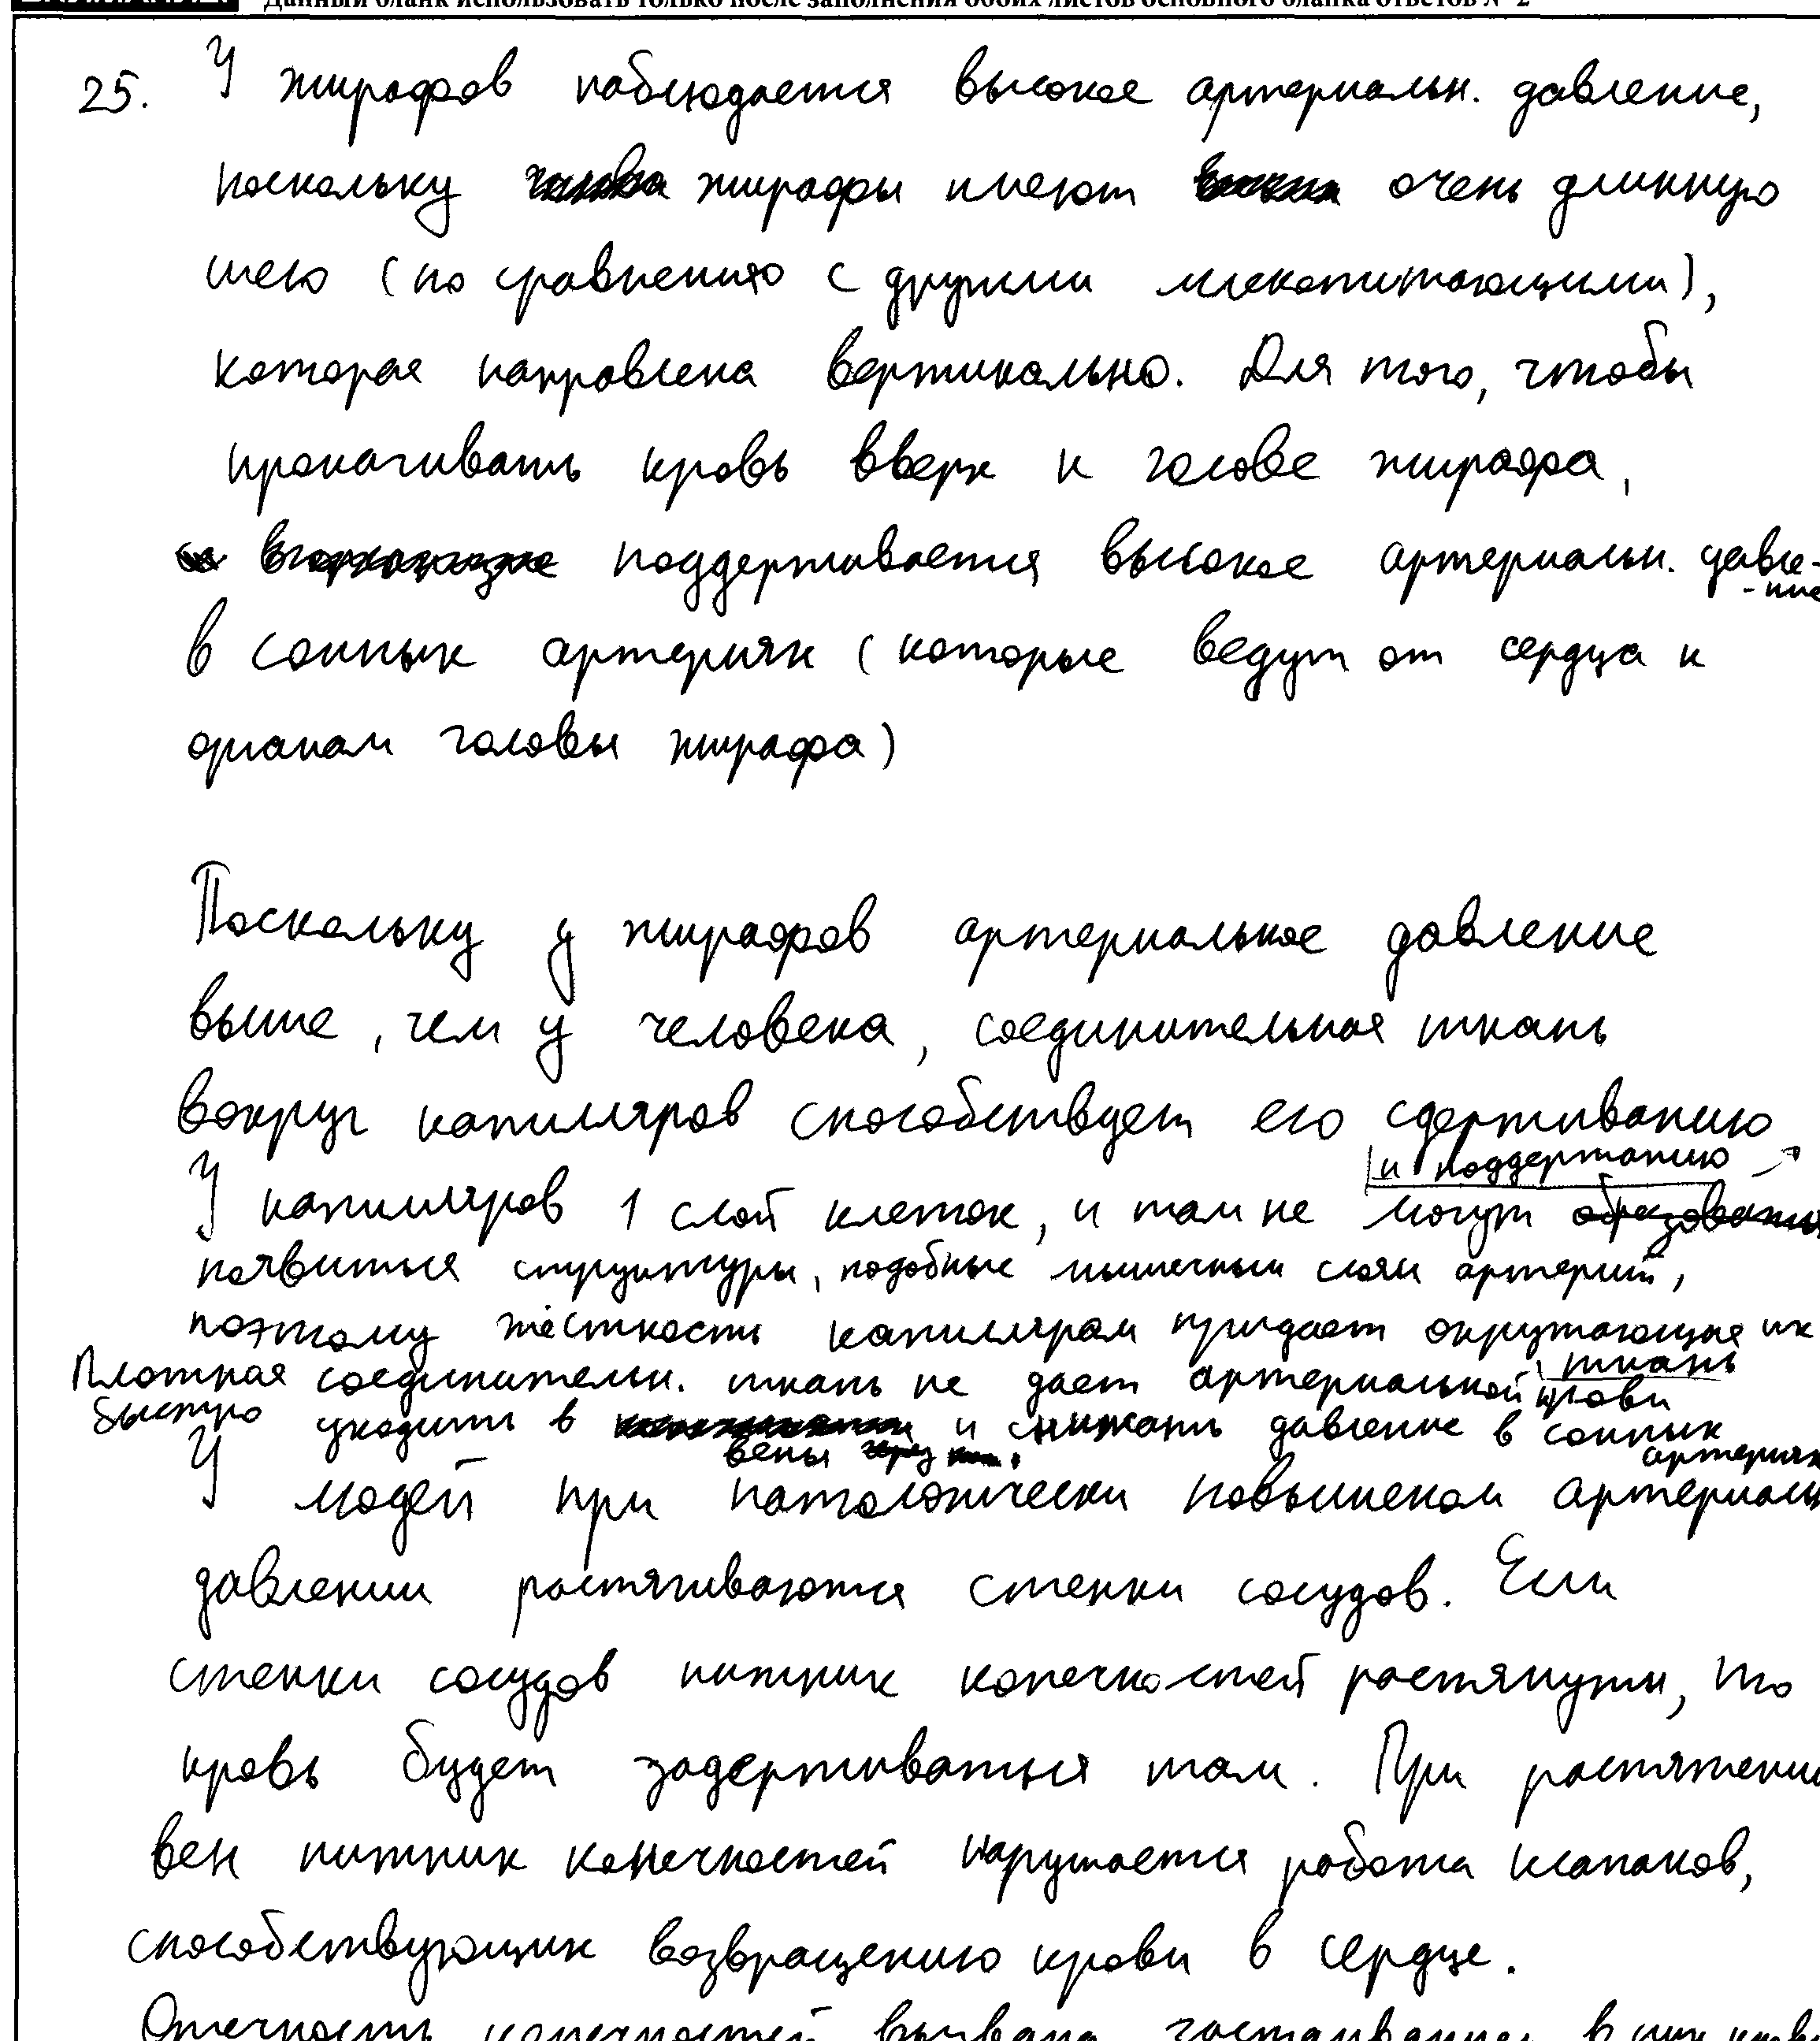 Данный бланк использовать только после заполнения обоих листов основного бланка ответов № 2
25. У жирафов наблюдается высокое артериальн. давление,
поскольку жирафы имеют очень длинную
шею (по сравнению с другими млекопитающими),
которая направлена вертикально. Для того, чтобы
прокачивать кровь вверх к голове жирафа,
поддерживается высокое артериальн. давле-
-ние
в сонных артериях (которые ведут от сердца к
органам головы жирафа)
Поскольку у жирафов артериальное давление
выше, чем у человека, соединительная ткань
вокруг капилляров способствует его сдерживанию
и поддержанию
У капилляров 1 слой клеток, и там не могут
появиться структуры, подобные мышечным слоям артерий,
поэтому жёсткости капиллярам придает окружающая их
ткань
Плотная соединительн. ткань не дает артериальной крови
быстро уходить в вены и снижать давление в сонных
артериях
У людей при патологически повышеном
давлении растягиваются стенки сосудов. Если
стенки сосудов нижних конечностей растянуты, то
кровь будет задерживаться там. При
вен нижних конечностей нарушается работа клапанов,
способствующих возвращению крови в сердце.
Отечность конечностей вызвана